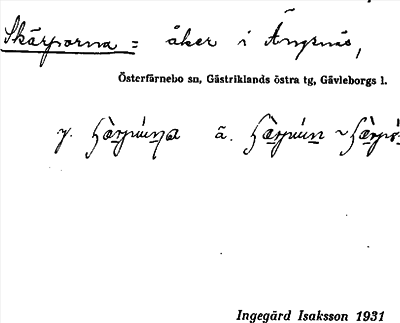 Skärporna = åker i Ängsnäs,
Österfärnebo sn, Gästriklands östra tg, Gävleborgs l.
y. ä.
Ingegärd Isaksson 1931